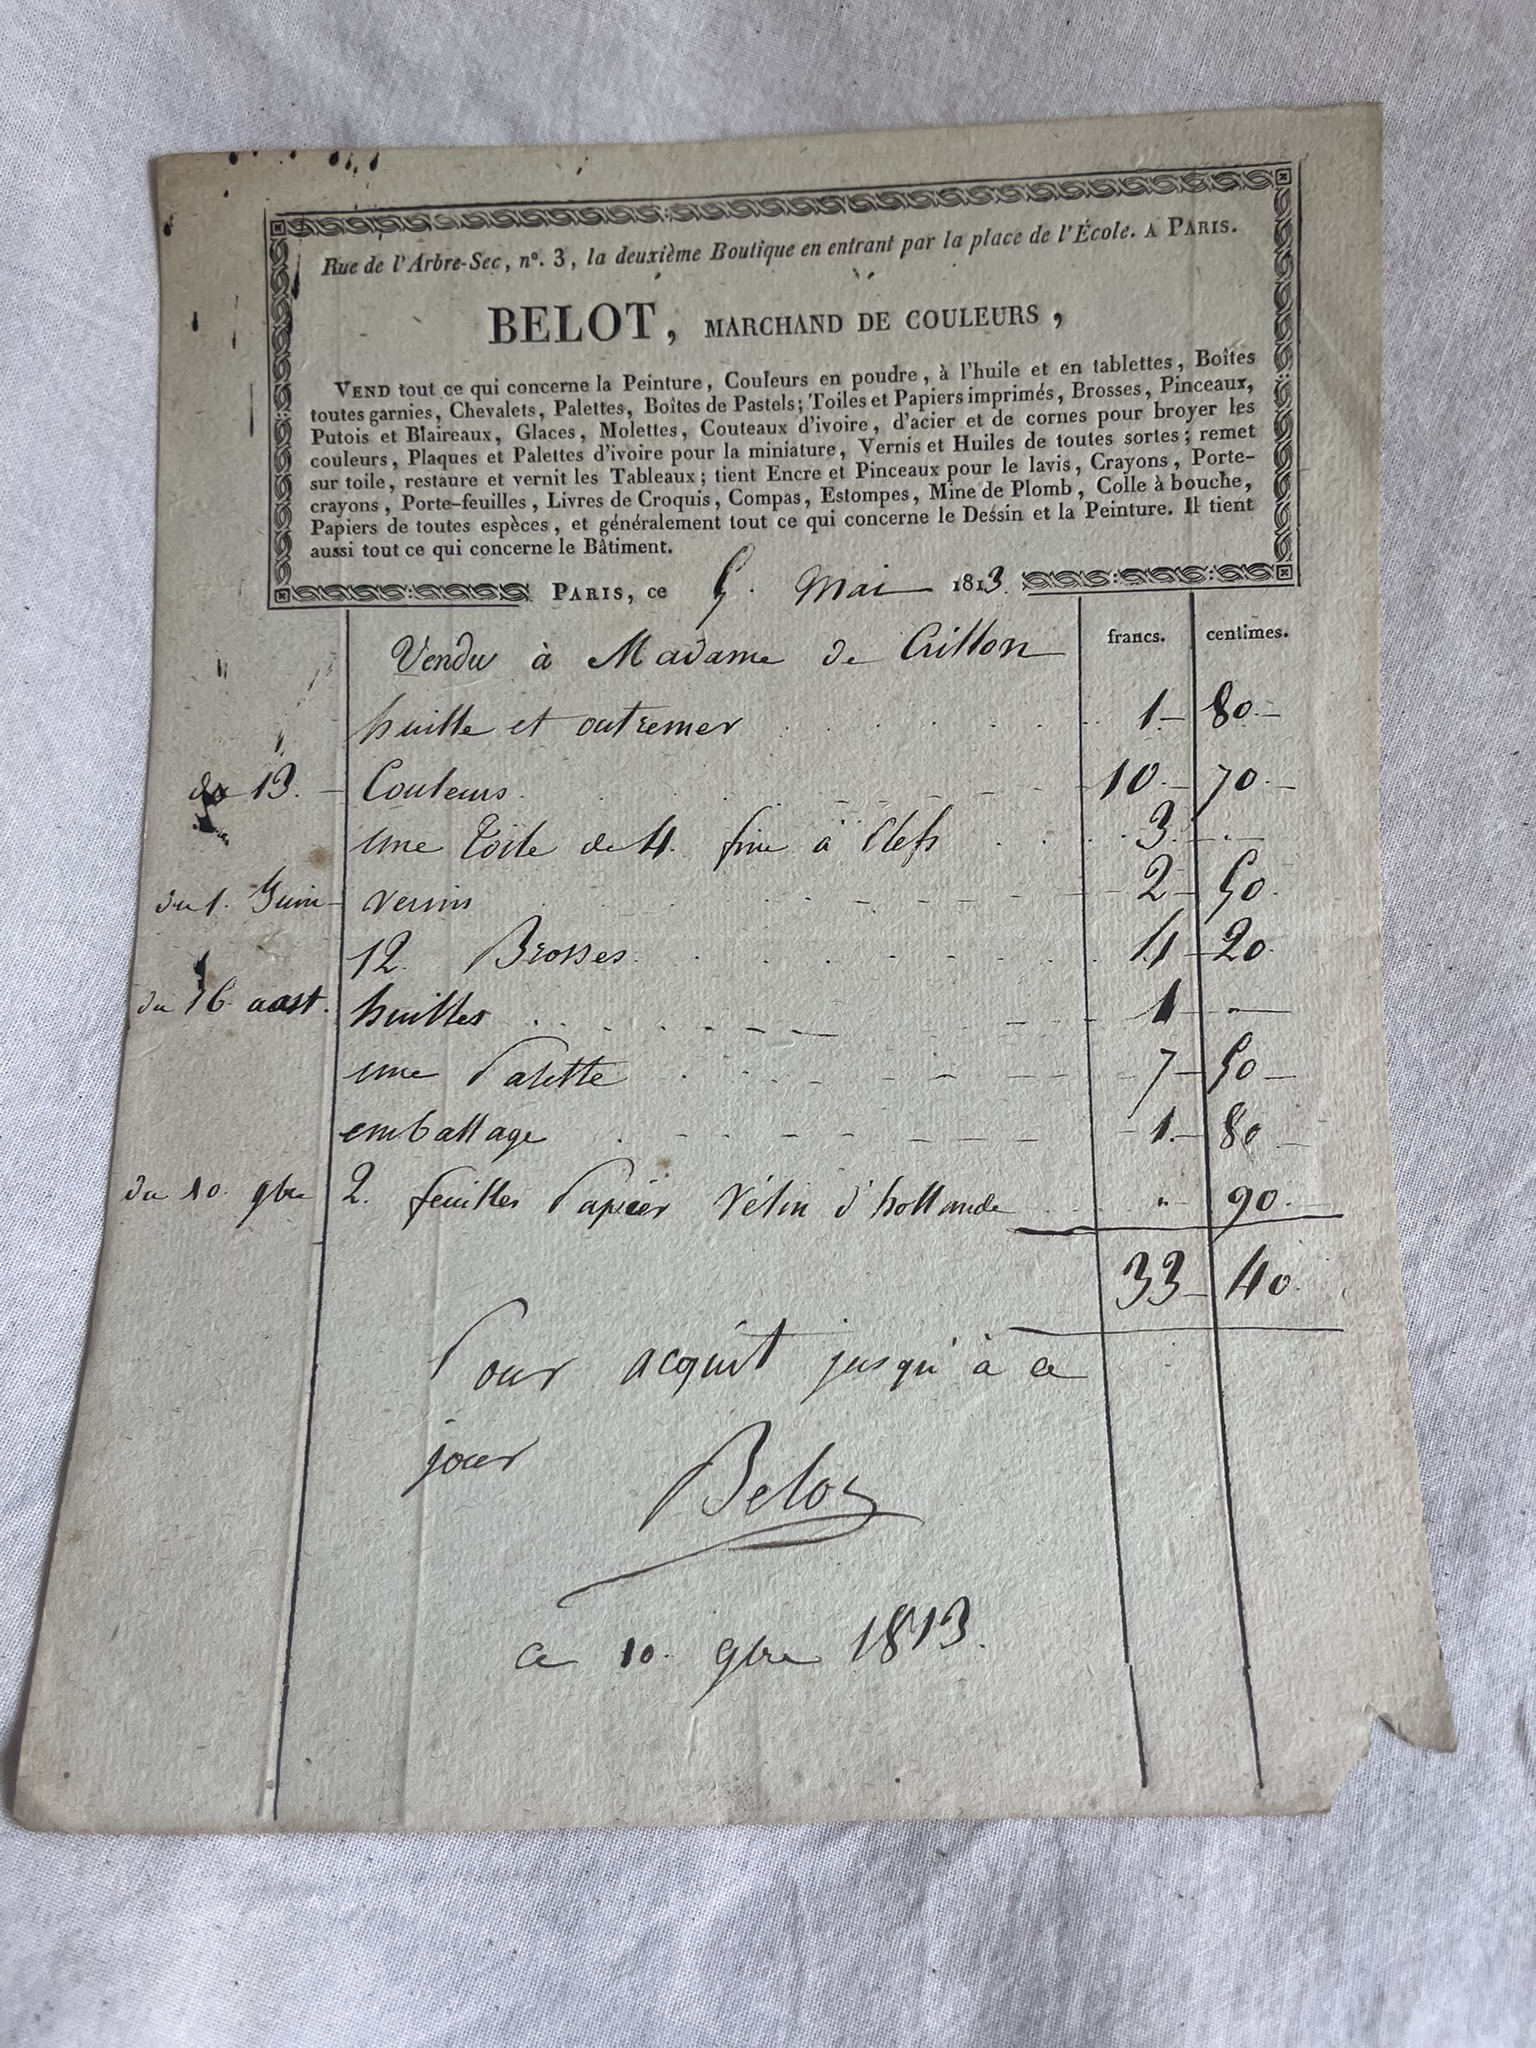 Rue de l'Arbre-Sec, nº. 3, la deuxième Boutique en entrant par la place de l'École. A PARIS.
BELOT, MARCHAND DE COULEURS,
VEND tout ce qui concerne la Peinture, Couleurs en poudre, à l'huile et en tablettes, Boîtes
toutes garnies, Chevalets, Palettes, Boîtes de Pastels; Toiles et Papiers imprimés, Brosses, Pinceaux,
Putois et Blaireaux, Glaces, Molettes, Couteaux d'ivoire, d'acier et de cornes pour broyer les
couleurs, Plaques et Palettes d'ivoire pour la miniature, Vernis et Huiles de toutes sortes; remet
sur toile, restaure et vernit les Tableaux; tient Encre et Pinceaux pour le lavis, Crayons, Porte-
crayons, Porte-feuilles, Livres de Croquis, Compas, Estompes, Mine de Plomb, Colle à bouche,
Papiers de toutes espèces, et généralement tout ce qui concerne le Dessin et la Peinture. Il tient
aussi tout ce qui concerne le Bâtiment.
PARIS, ce 5. Mai 1813.
francs. centimes.
Vendu à Madame de Crillon
huille et outremer 1 80
du 13. Couleurs 10 70
une toile de 4. fine à Clefs 3
du 1. Juin vernis 2 50
12. Brosses 4 20
du 16 aost. huilles 1 -
une Palette 7 50
emballage 1 80
du 10. 9bre 2. feuilles Papier Vélin d'hollande " 90
33 40
Pour acquit jusqu'à ce
jour
Belot
ce 10. 9bre 1813.